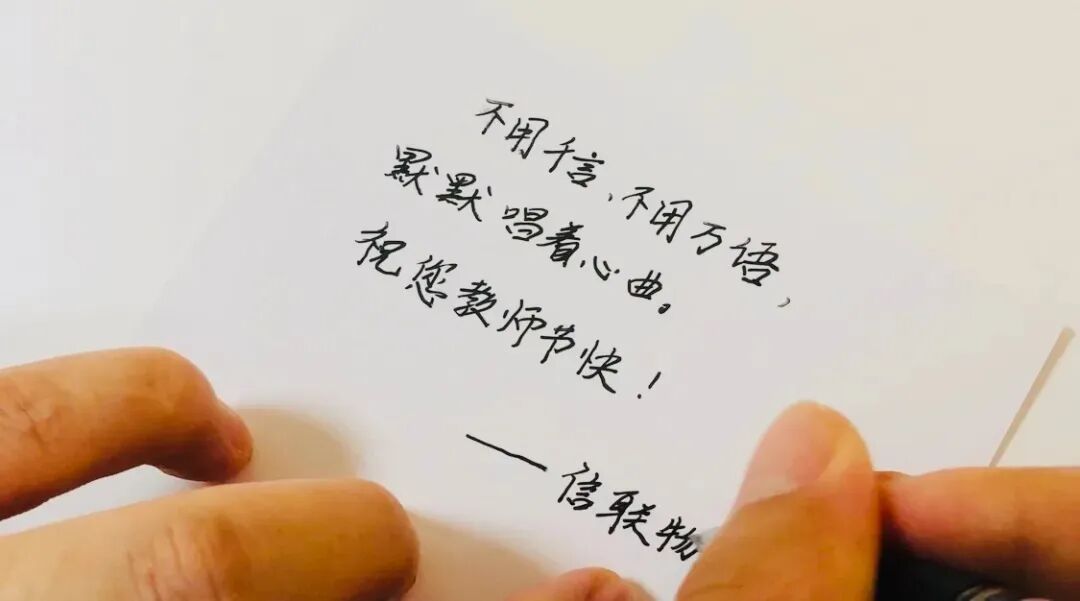 不用千言、不用万语，
默默唱着心曲。
祝您教师节快！
——信联物